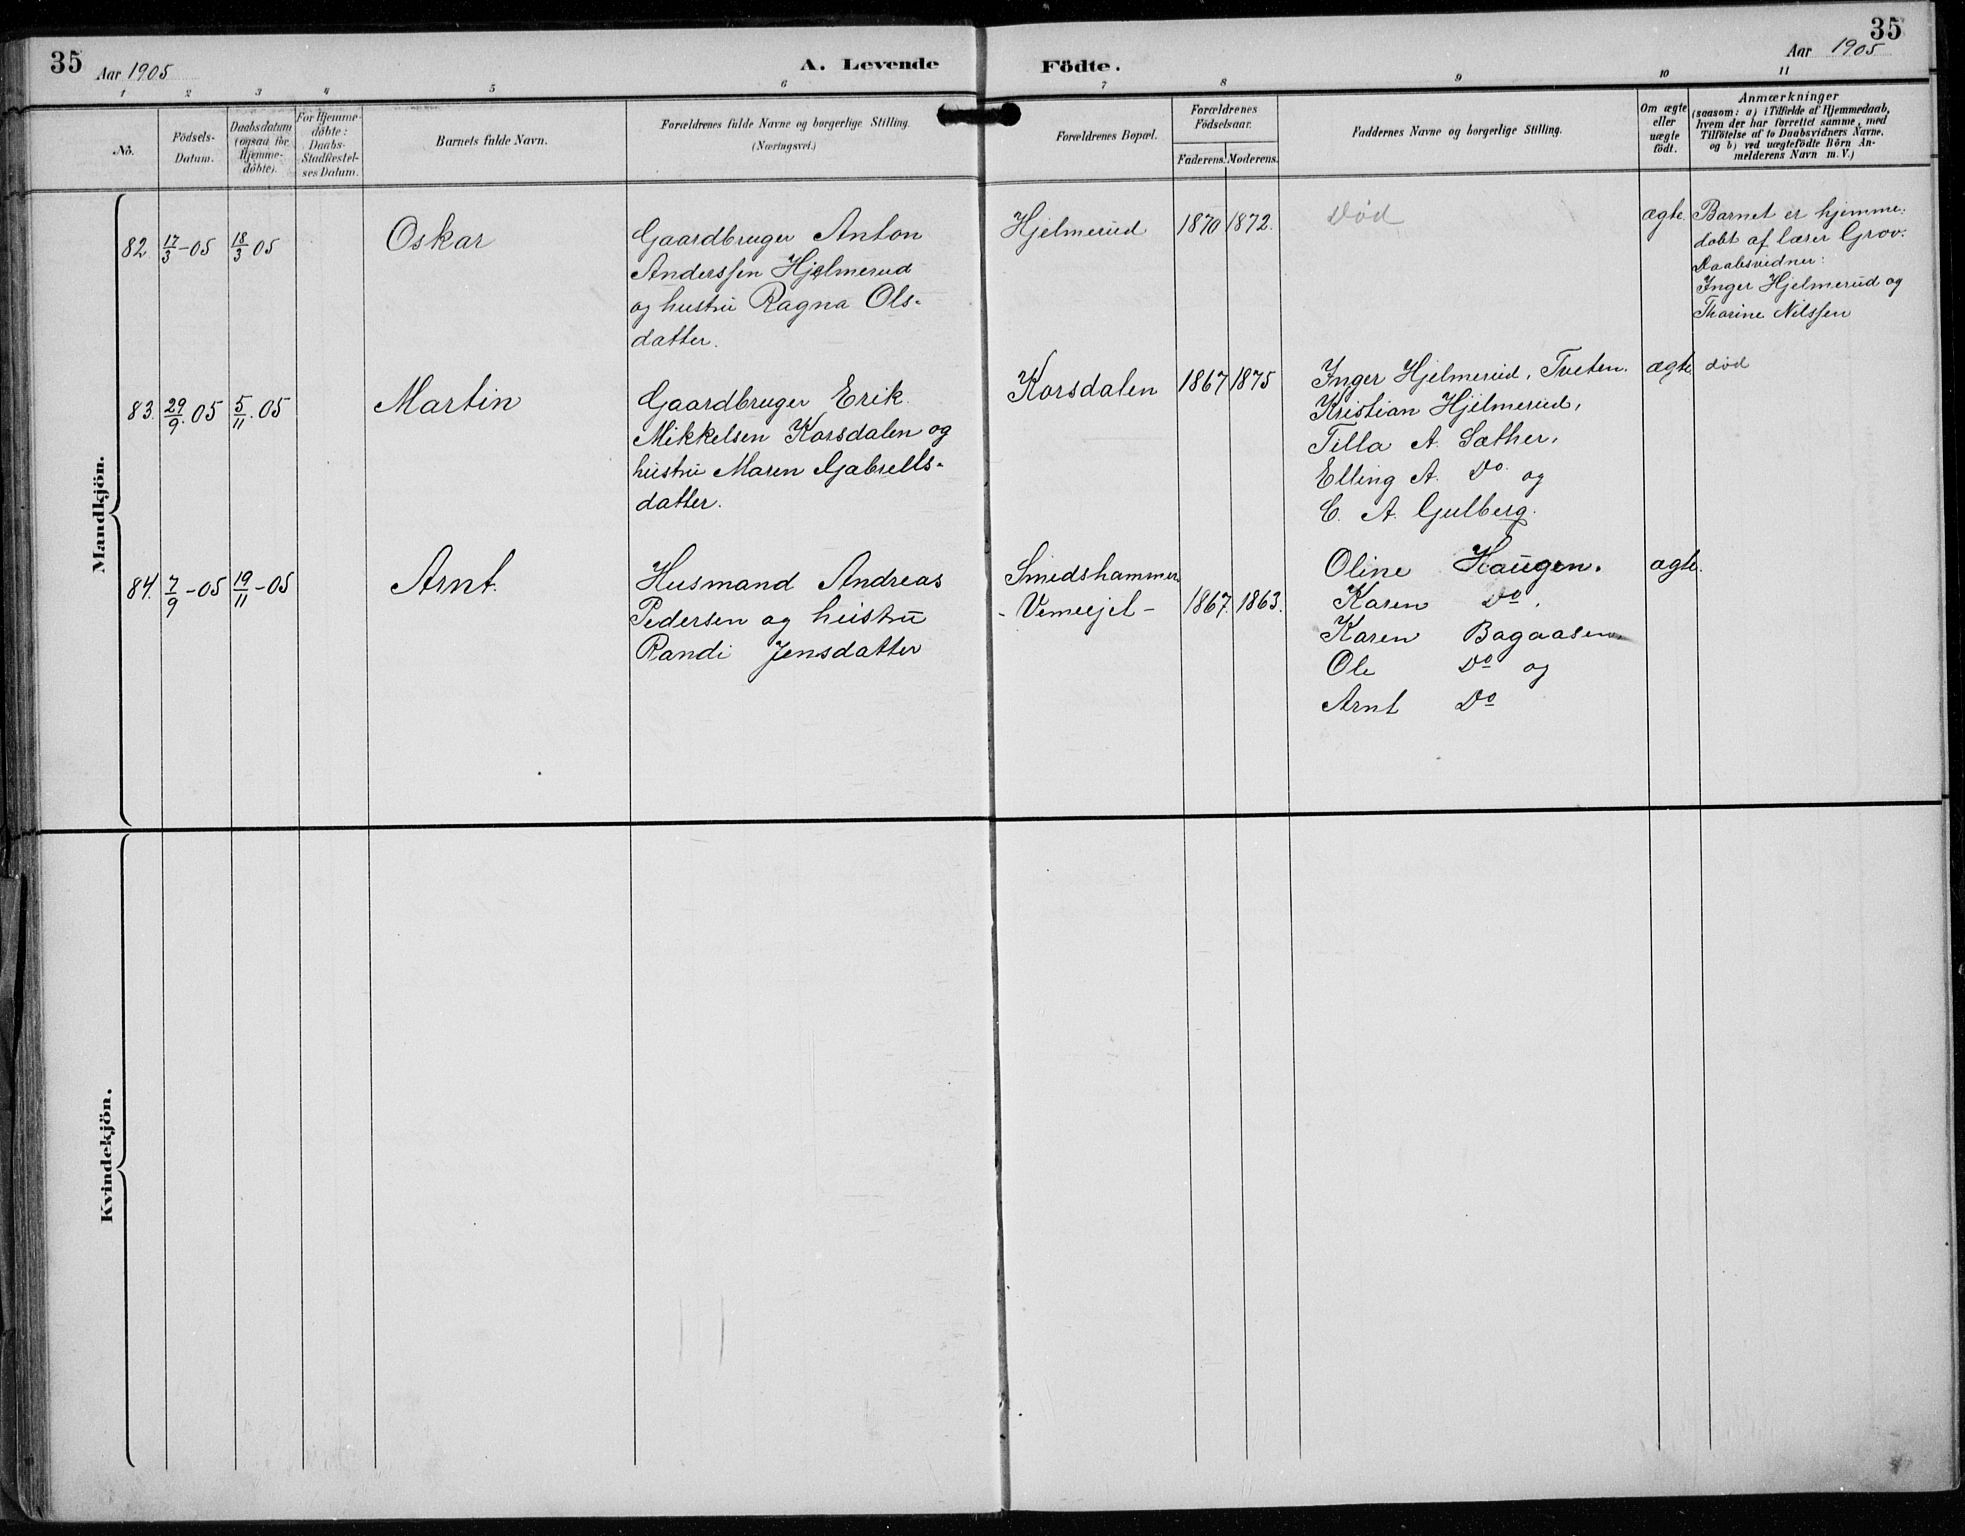 35
Aar 1905
A. Levende
Födte.
Aar 1905
35
1 2 3 4 5 6 7 8 9 10 11
No.
Födsels-
Datum.
Daabsdatum
(ogsaa for
Hjemme-
döbte).
For Hjemme-
döbte:
Daabs-
Stadfæstel-
ses Datum.
Barnets fulde Navn.
Forældrenes fulde Navne og borgerlige Stilling.
(Næringsvei.)
Forældrenes Bopæl.
Forældrenes
Födselsaar.
Faderens. Moderens.
Faddernes Navne og borgerlige Stilling.
Om ægte
eller
uægte
födt.
Anmærkninger
(saasom: a) i Tilfælde af Hjemmedaab,
hvem der har forrettet samme, med
Tilföielse af to Daabsvidners Navne.
og b) ved uægtefödte Börn An-
melderens Navn m. V.)
Mandkjön.
82. 17/3-05 18/3 05 Oskar
Gaardbruger Anton
Anderssen Hjelmerud
og hustru Ragna Ols-
datter.
Hjelmerud 1870 1872. Død ægte.
Barnet er hjemme:
døbt af lærer Grov.
Daabsvidner:
Inger Hjelmerud og
Thorine Nilssen
83. 29/9.05 5/11.05 Martin
Gaardbruger Erik
Mikkelsen Korsdalen og
hustru Maren Gabrells-
datter.
Korsdalen 1867 1875
Inger Hjelmerud, Tveten.
Kristian Hjelmerud,
Tilla A. Sæther,
Elling A. Do og
C. A. Gulberg.
ægte død
84. 7/9-05 19/11-05 Arnt.
Husmand Andreas
Pedersen og hustru
Randi Jensdatter
Smedshammer
- 1867. 1863.
Oline Haugen.
Karen Do.
Karen Bagaasen.
Ole Do og
Arnt Do
ægte.
Kvindekjön.